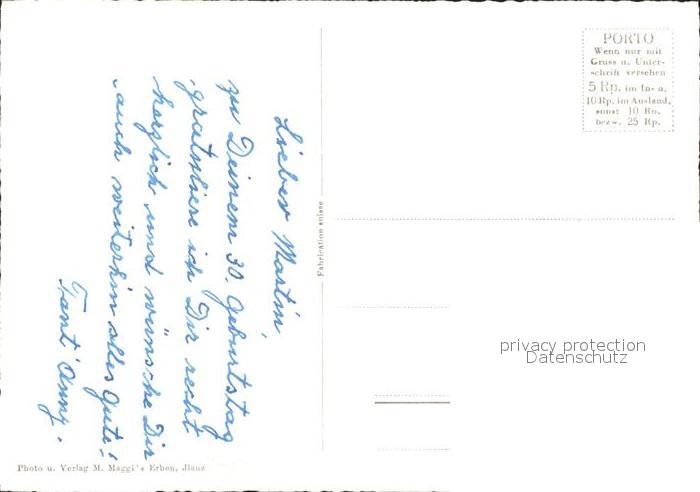 Lieber Martin,
zu Deinem 30. Geburtstag
gratuliere ich Dir recht
herzlich und wünsche Dir
auch weiterhin alles Gute!
Tant' Anny.
Photo u. Verlag M. Maggi's Erben, Jlanz
Fabrication suisse
PORTO
Wenn nur mit
Gruss u. Unter-
schrift versehen
5 Rp. im In- u.
10 Rp. im Ausland,
sonst 10 Rp.
bezw. 25 Rp.
privacy protection
Datenschutz